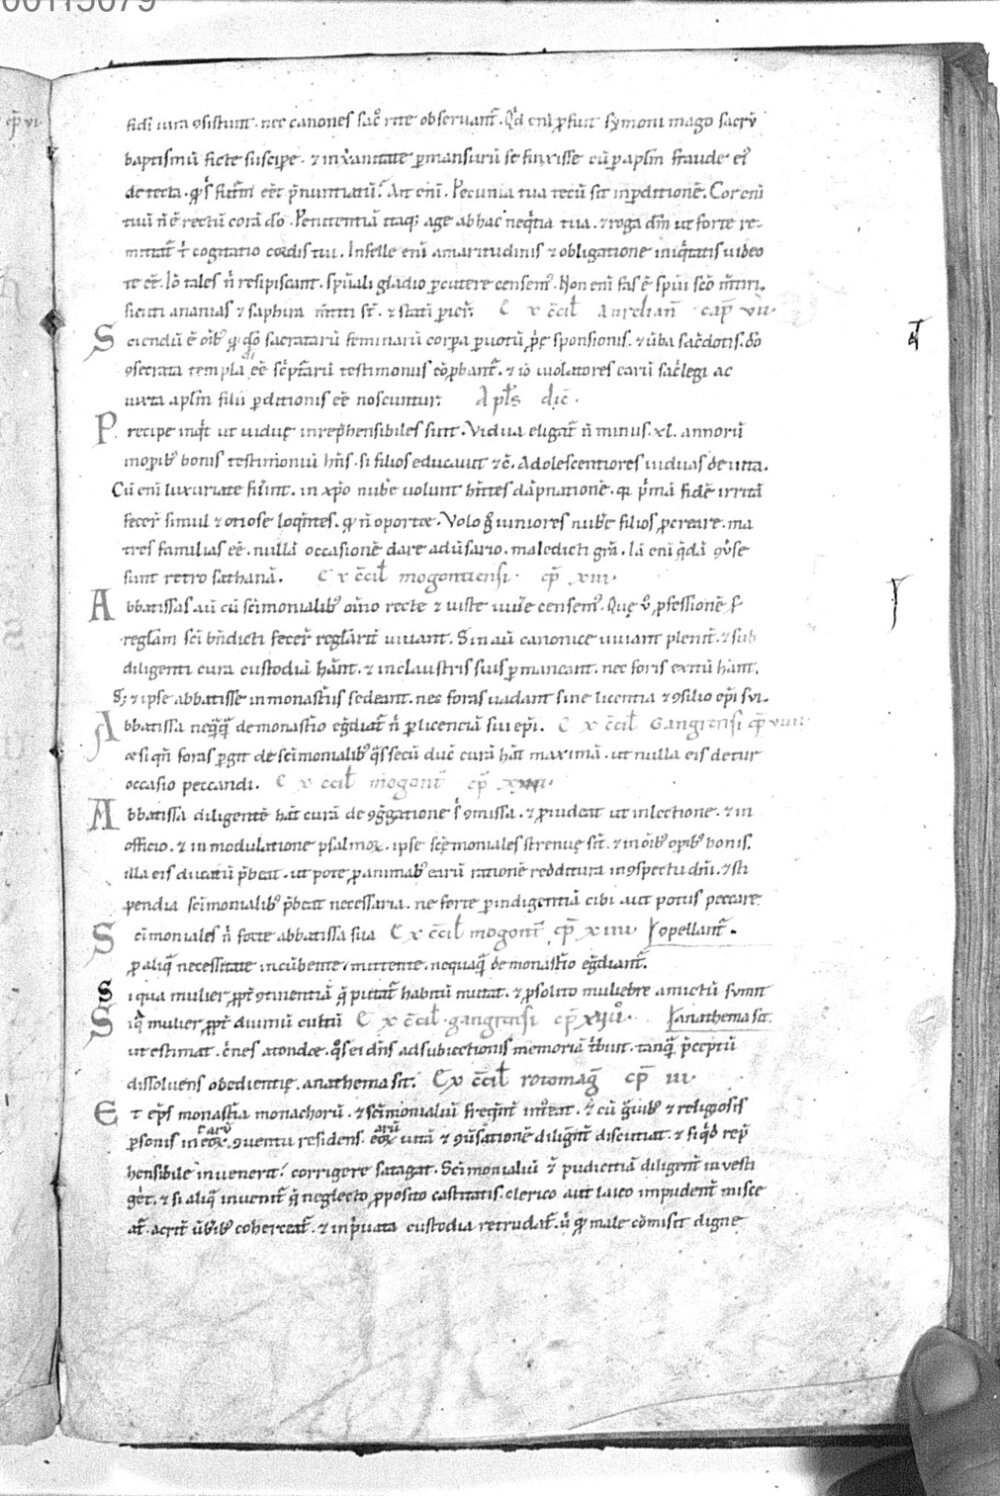 00115079
cp̄ vi
fidī iura ꝯsistunt. nec canones sac̄ rite obseruant̄. Qd̓ enī ꝓfuit symoni mago sacrū
baptismū ficte suscipe. ⁊ in xp̄anitate ꝑmansurū se finxisse cū ꝑ aplm̄ fraude ei᷒
detecta. qd̓ s; futurū eēt p̄nuntiatū? Ait enī. Pecunia tua tecū sit in ꝑditionē. Cor enī
tuū n̄ ē rectū corā dō. Penitentiā itaq; age ab hac neq̓tia tua. ⁊ roga dm̄ ut forte re-
mittat̄ t̄ cogitatio cordis tui. In felle enī amaritudinis ⁊ obligatione iniq̓tatis uideo
te eē. Iō tales n̄ resipiscant. spūali gladio ꝑcutere censem᷒. Non enī fas ē spūi scō m̄tiri.
sicuti ananias ⁊ saphira m̄titi st̄. ⁊ statī ꝑier̄. E x c̄cil̄ Aurelian̄ cap̄ vii
Sciendū ē oīb᷒ qd̓ sacratarū feminarū corꝑa ꝑ uotū ꝓp̄e sponsionis. ⁊ ūba sac̄dotis. dō
ꝯsecrata templa eē sc̓pt̄arū testimoniis cōꝓbant̄. ⁊ iō uiolatores earū sac̓legi ac
iuxta aplm̄ filii ꝑditionis eē noscuntur. Apl̄s dic̄.
Precipe inq̓t ut uiduę inrep̄hensibiles sint. Vidua eligat̄ n̄ minus .xl. annorū
in oꝑib᷒ bonis testimoniū hn̄s. si filios educauit ⁊c̄. Adolescentiores uiduas deuita.
Cū enī luxuriate fuer̄int. in xp̄o nub̄e uolunt hn̄tes dāpnationē. qr p̓mā fidē irritā
fecer̄ simul ⁊ otiose loq̄ntes. qd̓ n̄ oportet. Volo g̊ iuniores nub̄e filios ꝓcreare. ma
tres familias eē. nullā occasionē dare adūsario. maledicti gr̄a. Iā enī q̓dā ꝯu̓se
sunt retro sathanā. E x c̄cil̄ mogontiensi. cp̄ xiii.
Abbatissas aū cū sc̄imonialib᷒ om̄ino recte ⁊ iuste uiu̓e censem᷒. Quę u̓ ꝓfessionē s;
reglam̄ sc̄i bn̄dicti fecer̄ reglarit̄ uiuant. Sin aū canonice uiuant plenit̄. ⁊ sub
diligenti cura custodiā hān̄t. ⁊ in claustris suis ꝑmaneant. nec foris exitū hān̄t.
S; ⁊ ipse abbatisse in monast̓iis sedeant. nec foras uadant sine licentia ⁊ ꝯsilio ep̄i sui.
Abbatissa neq̄q̄ de monast̓io eḡdiat̄ n̄ ꝑ licenciā sui ep̄i. E x c̄cil̄ Gangrensi cp̄ viiii
⁊ si qn̄ foras ꝑgit de sc̄imonialib᷒ q̓s secū duc̄ curā hāt maximā. ut nulla eis detur
occasio peccandi. E x c̄cil̄ mogont̄ cp̄
Abbatissa diligentē hāt curā de ꝯḡgatione s; ꝯmissa. ⁊ ꝓuideat ut in lectione. ⁊ in
officio. ⁊ in modulatione psalmoꝝ. ipse sc̄emoniales strenuę sit̄. ⁊ in oīb᷒ oꝑib᷒ bonis.
illa eis ducatū p̄beat. ut pote ꝓ animab᷒ earū rationē redditura in ꝯspectu dn̄i. ⁊ sti
pendia sc̄imonialib᷒ p̄beat necessaria. ne forte ꝑ indigentiā cibi aut potus peccare
Scimoniales n̄ forte abbatissa sua E x c̄cil̄ mogont̄ cp̄ xiiii opellant̄.
ꝓ aliq̄ necessitate incūbente/ mittente. nequaq̄ de monast̓io eḡdiant̄.
Si qua mulier ꝓpt̄ ꝯtinentiā q̄ putat̄ habitū mutat. ⁊ ꝓ solito muliebre amictū sumit
Siq̄ mulier ꝓpt̄ diuinū cultū E x c̄cil̄ gangrensi cp̄ xvii. anathema sit.
ut estimat. c̓nes atondet. q̊s ei dn̄s ad subiectionis memoriā t̓buit. tanq̄ p̄ceptū
dissoluens obedientię. anathema sit. Ex c̄cil̄ rotomaḡ cp̄ iii.
Et ep̄s monast̓ia monachorū. ⁊ sc̄imonialiū freq̄nt̄ int̓eat. ⁊ cū g̓uib᷒ ⁊ religiosis
ꝑsonis in eoꝝ ꝯuentu residens. eoꝝ uitā ⁊ ꝯu̓sationē diliḡnt̄ discutiat. ⁊ si q̓d rep̄
hensibile inuenerit/ corrigere satagat. Sc̄imonialiū ⁊ pudicitiā diligent̄ inuesti
get. ⁊ si aliq̄ inuenit̄ q̄ neglecto ꝓposito castitatis. clerico aut laico impudent̄ misce
at̄. acrit̄ ūberib᷒ coherceat̄. ⁊ in p̓uata custodia retrudat̄. u̓ qd̓ male cōmisit digne